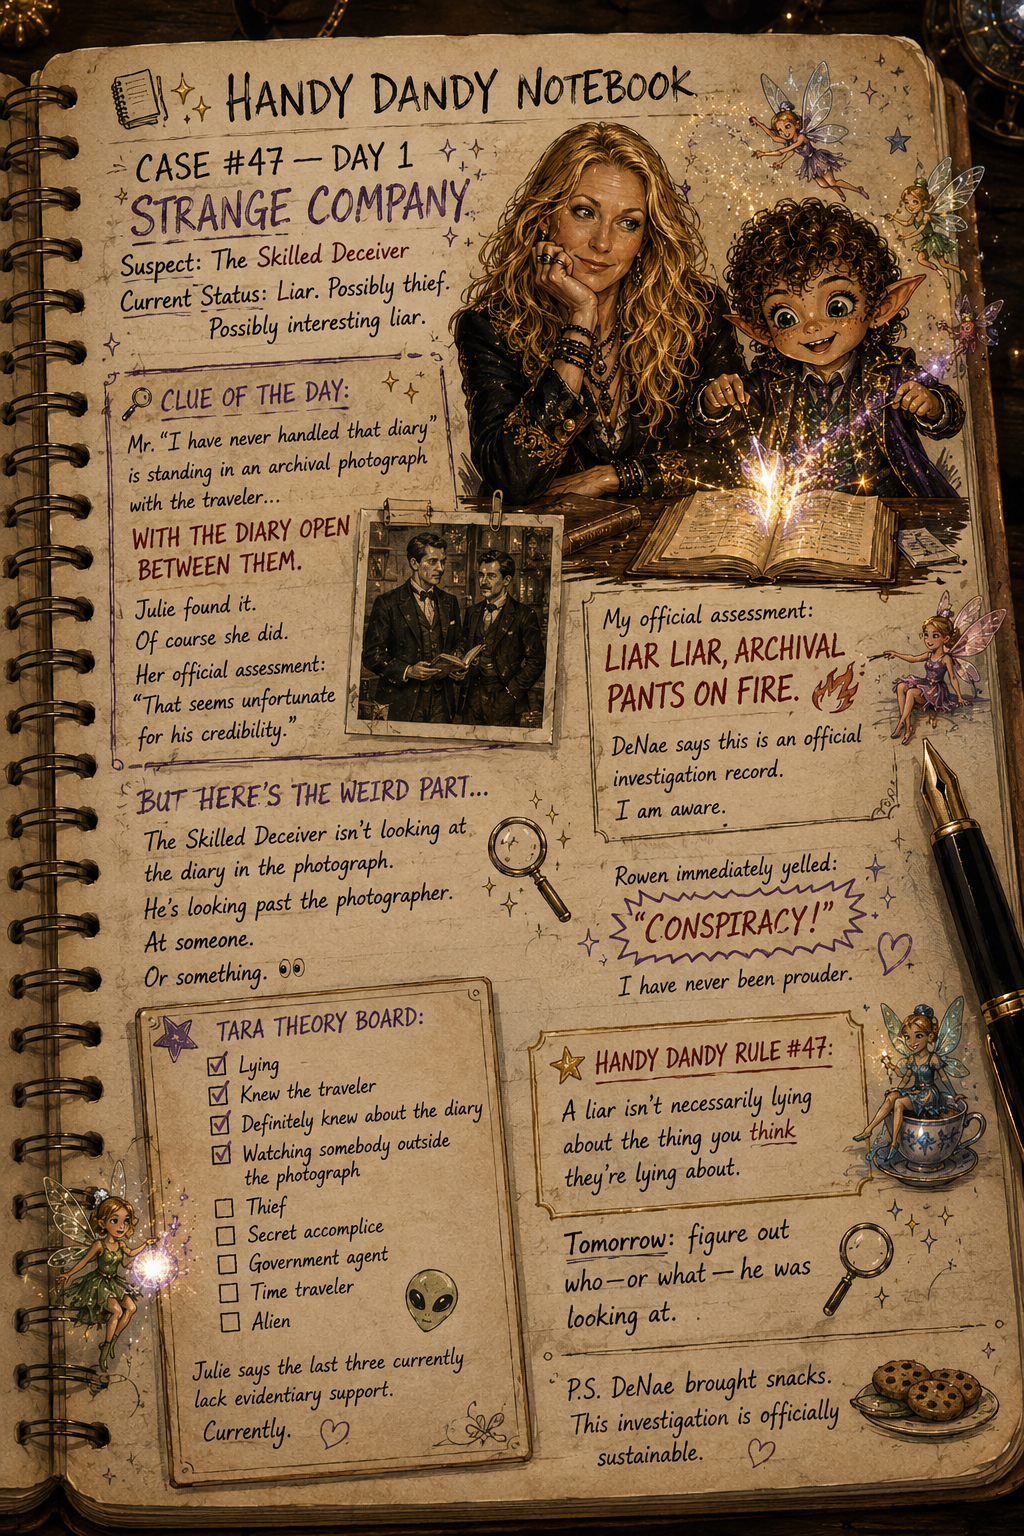 HANDY DANDY NOTEBOOK
CASE #47 — DAY 1
STRANGE COMPANY
Suspect: The Skilled Deceiver
Current Status: Liar. Possibly thief.
Possibly interesting liar.
CLUE OF THE DAY:
Mr. “I have never handled that diary”
is standing in an archival photograph
with the traveler...
WITH THE DIARY OPEN
BETWEEN THEM.
Julie found it.
Of course she did.
Her official assessment:
“That seems unfortunate
for his credibility.”
My official assessment:
LIAR LIAR, ARCHIVAL
PANTS ON FIRE.
DeNae says this is an official
investigation record.
I am aware.
BUT HERE’S THE WEIRD PART...
The Skilled Deceiver isn’t looking at
the diary in the photograph.
He’s looking past the photographer.
At someone.
Or something.
Rowen immediately yelled:
“CONSPIRACY!”
I have never been prouder.
TARA THEORY BOARD:
Lying
Knew the traveler
Definitely knew about the diary
Watching somebody outside
the photograph
Thief
Secret accomplice
Government agent
Time traveler
Alien
Julie says the last three currently
lack evidentiary support.
Currently.
HANDY DANDY RULE #47:
A liar isn’t necessarily lying
about the thing you think
they’re lying about.
Tomorrow: figure out
who—or what—he was
looking at.
P.S. DeNae brought snacks.
This investigation is officially
sustainable.